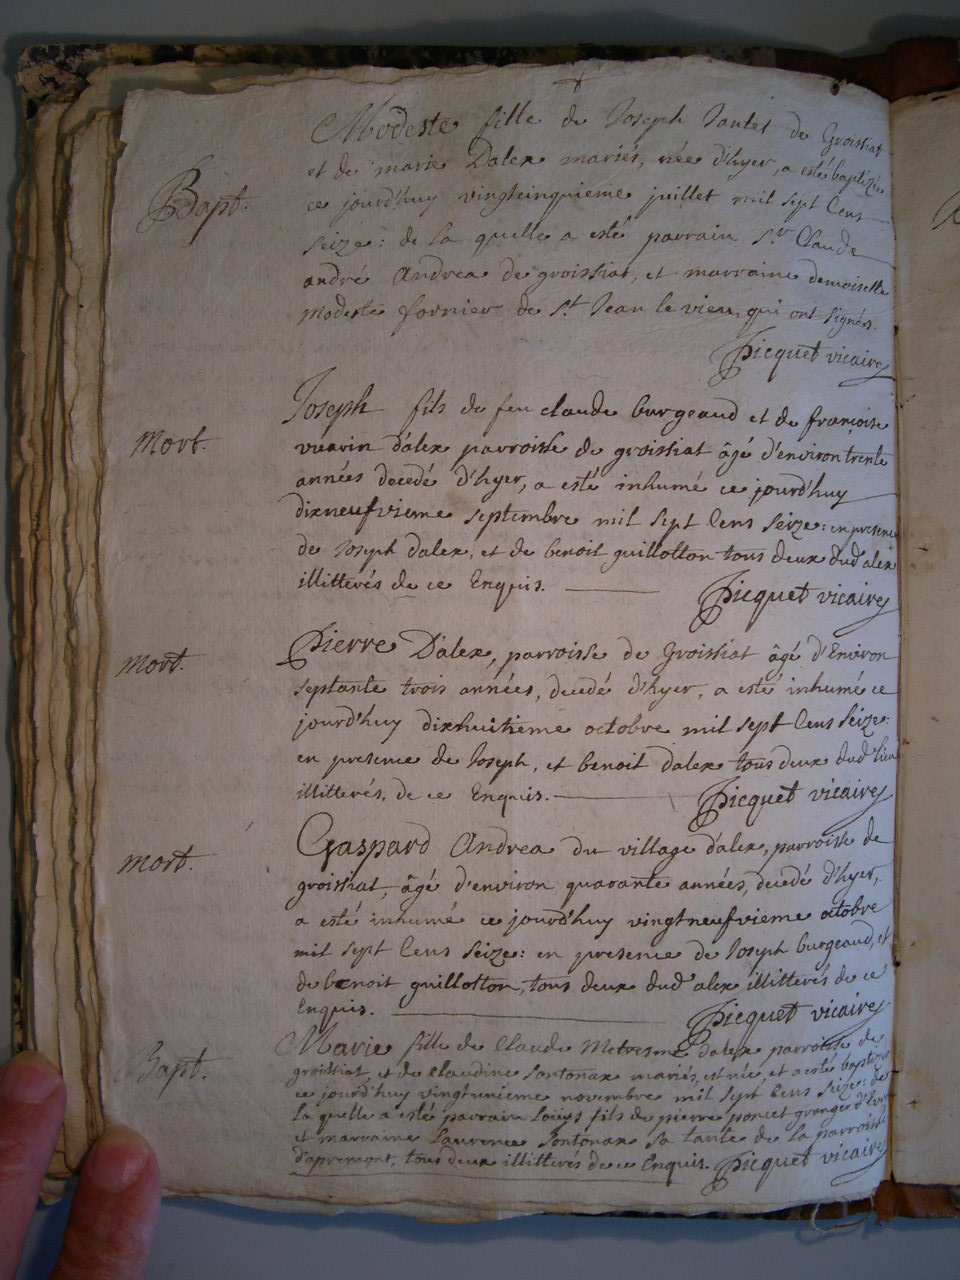 Modeste fille de Joseph Jantet de Groissiat
et de marie Dalex mariés, née d'hyer, a esté baptizée
Bapt. ce jourd'huy vingtcinquieme juillet mil sept Cens
seize: de la quelle a esté parrain Sr. Claude
andré Andrea de groissiat, et marraine demoiselle
modeste fornier de St. Jean le vieux, qui ont signés.
Picquet vicaire
Joseph fils de feu claude burgeaud et de françoise
Mort. vuarin d'alex parroisse de groissiat âgé d'environ trente
années decedé d'hyer, a esté inhumé ce jourd'huy
dixneufvieme septembre mil sept Cens seize: en presence
de Joseph dalex, et de benoit guillotton tous deux dud. alex
illitterés de ce Enquis. Picquet vicaire
Mort. Pierre D'alex, parroisse de Groissiat âgé d'Environ
septante trois années, decedé d'hyer, a esté inhumé ce
jourd'huy dixhuitieme octobre mil sept Cens seize:
en presence de Joseph, et benoit dalex tous deux dud. lieu
illitterés, de ce Enquis. Picquet vicaire
Mort. Gaspard Andrea du village d'alex, parroisse de
groissiat, âgé d'environ quarante années, decedé d'hyer,
a esté inhumé ce jourd'huy vingtneufvieme octobre
mil sept Cens seize: en presence de Joseph burgeaud, et
de benoit guillotton, tous deux dud. alex illitterés de ce
Enquis. Picquet vicaire
Bapt. Marie fille de Claude d'alex parroisse de
groissiat, et de claudine Sontonax mariés, est née, et a esté baptizée
ce jourd'huy vingtunieme novembre mil sept Cens seize: de
la quelle a esté parrain Loüys fils de pierre poncet granger
et marraine Laurence Sontonax sa tante de la parroisse
d'apremont, tous deux illitterés de ce Enquis. Picquet vicaire